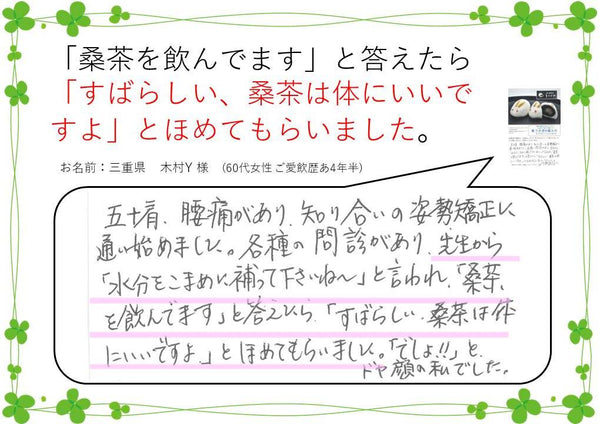 「桑茶を飲んでます」と答えたら
「すばらしい、桑茶は体にいいで
すよ」とほめてもらいました。
お名前：三重県 木村Y 様 (60代女性ご愛飲歴あ4年半)
五十肩、腰痛があり、知り合いの姿勢矯正に
通い始めました。各種の問診があり、先生から
「水分をこまめに補って下さいね〜」と言われ、「桑茶
を飲んでます」と答えたら、「すばらしい、桑茶は体
にいいですよ」とほめてもらいました。「でしょ!!」と、
ドヤ顔の私でした。